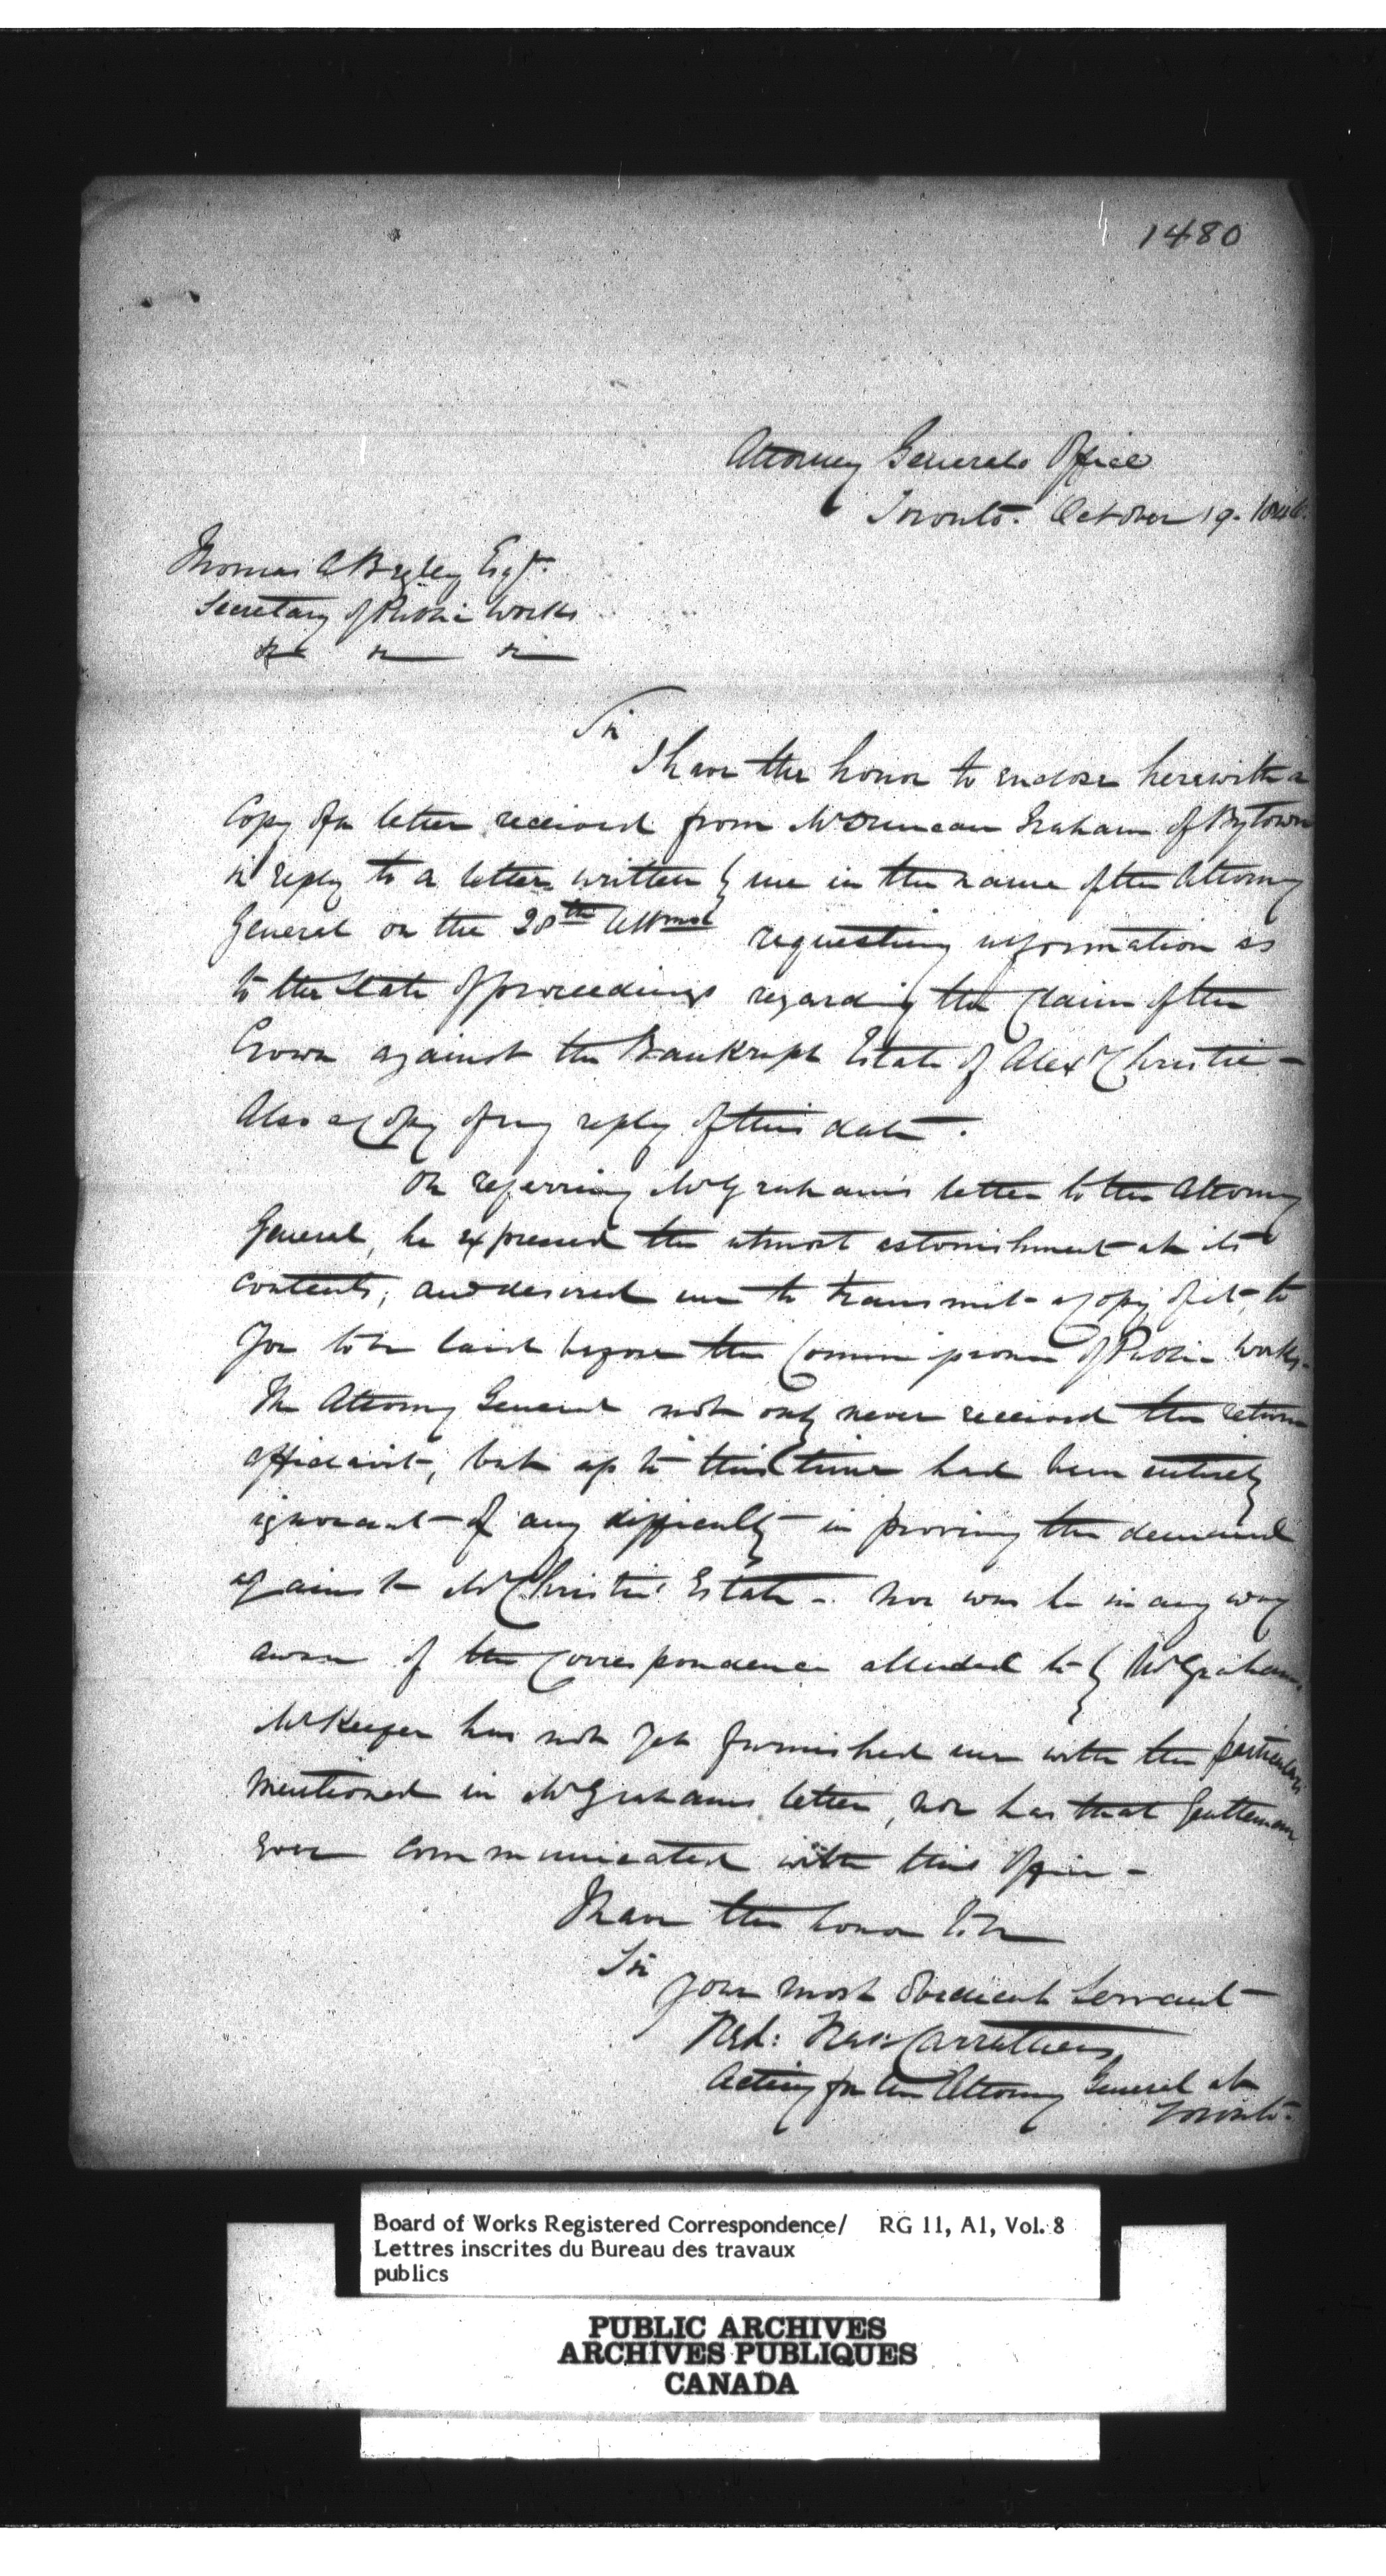 1480
Attorney Generals Office
Toronto. October 19. 1846.
Thomas A Begley Esqr.
Secretary of Public Works
&c &c &c
Sir
I have the honor to enclose herewith a
Copy of a letter received from Mr Duncan Graham of Bytown
in reply to a letter written by me in the name of the Attorney
General on the 28th Ultimo requesting information as
to the State of proceedings regarding the Claim of the
Crown against the Bankrupt Estate of Alexr Christie -
Also a Copy of my reply of this date.
On referring Mr Graham's letter to the Attorney
General, he expressed the utmost astonishment at its
contents, and desired me to transmit a copy of it, to
you to be laid before the Commissioner of Public Works.
The Attorney General not only never received the return
affidavit, but up to this time had been entirely
ignorant of any difficulty in proving the demand
against Mr Christie's Estate - nor was he in any way
aware of the Correspondence alluded to by Mr Graham.
Mr Keefer has not yet furnished me with the particulars
mentioned in Mr Grahams letter, nor has that Gentleman
ever communicated with this Office -
I have the honor to be
Sir
Your most Obedient Servant
Carruthers
Acting for the Attorney General at
Toronto.
Board of Works Registered Correspondence/ RG 11, A1, Vol. 8
Lettres inscrites du Bureau des travaux
publics
PUBLIC ARCHIVES
ARCHIVES PUBLIQUES
CANADA